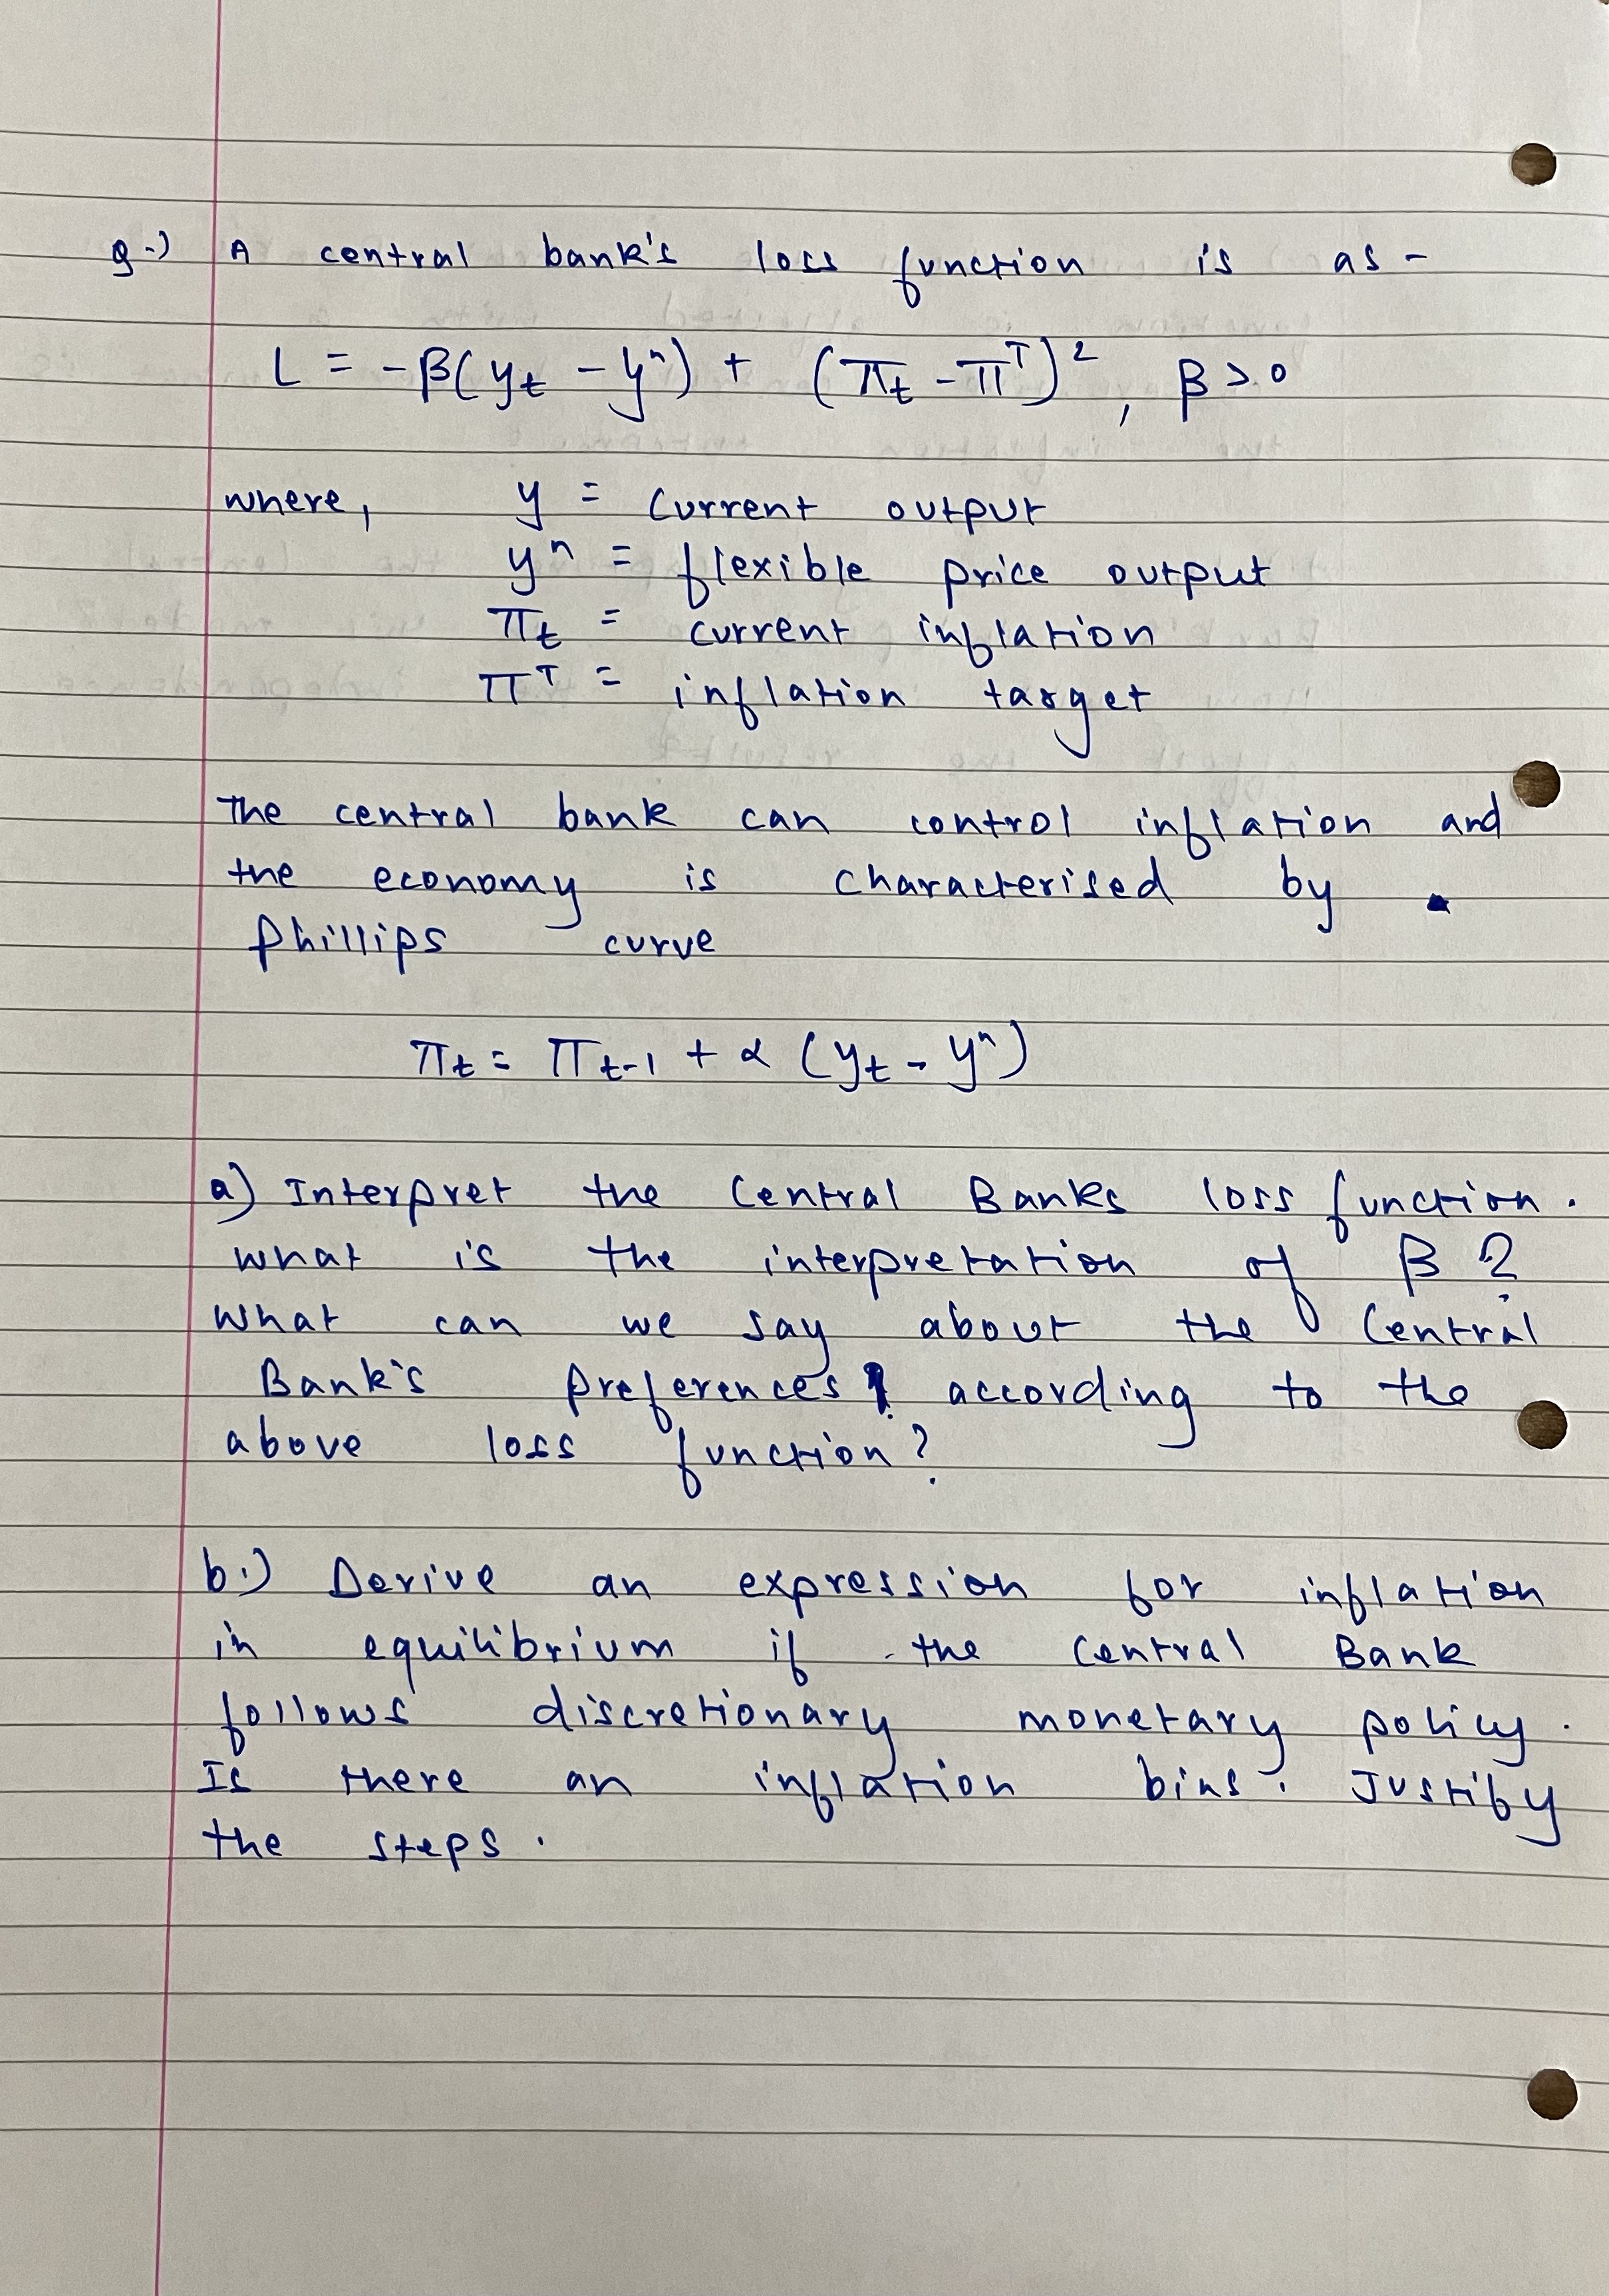 Q.) A central bank's loss function is as -
L = -β(yt - yⁿ) + (πt - πᵀ)², β > 0
where, y = current output
yⁿ = flexible price output
πt = current inflation
πᵀ = inflation target
The central bank can control inflation and
the economy is characterised by
phillips curve
πt = πt-1 + α (yt - yⁿ)
a) Interpret the Central Banks loss function.
What is the interpretation of β?
What can we say about the Central
Bank's preferences according to the
above loss function?
b.) Derive an expression for inflation
in equilibrium if the Central Bank
follows discretionary monetary policy.
Is there an inflation bias. Justify
the steps.